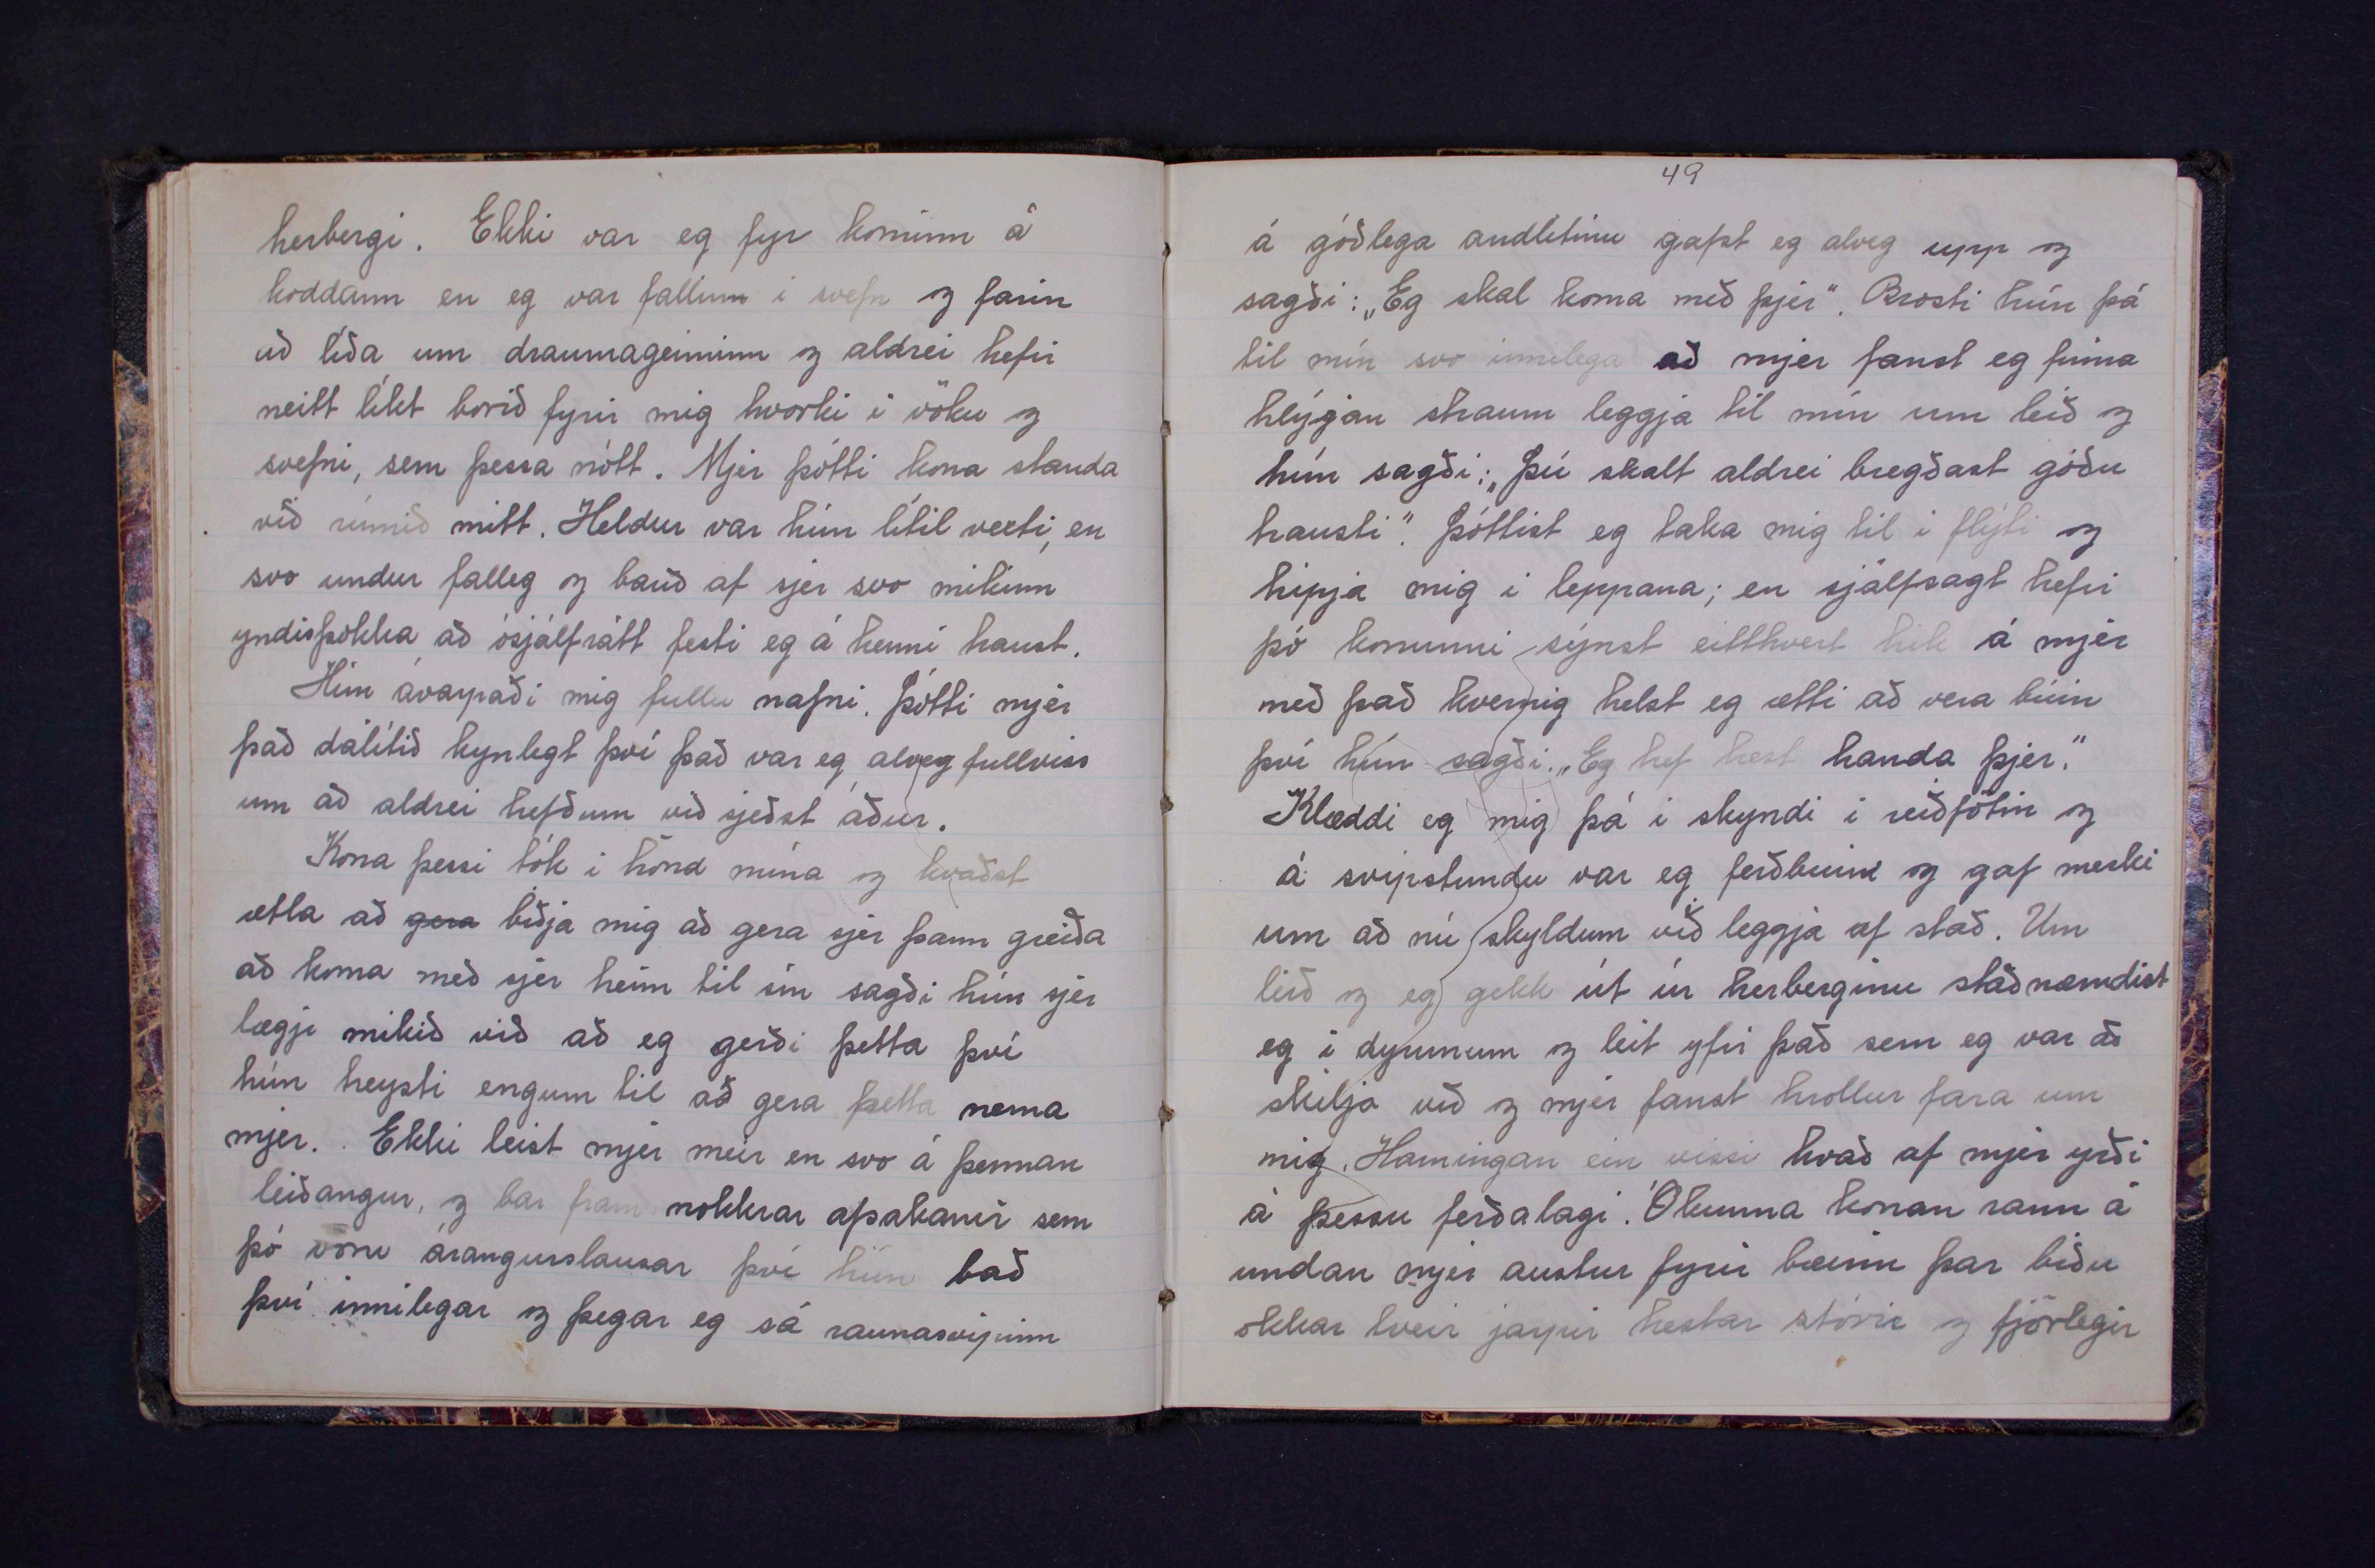 herbergi. Ekki var eg fyr kominn á
koddann en eg var fallinn i svefn og farin
að líða um draumageiminn og aldrei hefir
neitt líkt borið fyrir mig hvorki i vöku og
svefni, sem þessa nótt. Mjer þótti kona standa
við rúmið mitt. Heldur var hún lítil vexti, en
svo undur falleg og bauð af sjer svo mikinn
yndisþokka að ósjálfrátt festi eg á henni traust.
Hún ávarpaði mig fullu nafni. Þótti mjer
það dálítið kynlegt því það var eg alveg fullviss
um að aldrei hefðum við sjeðst áður.
Kona þessi tók i hönd mína og kvaðst
ætla að gera biðja mig að gera sjer þann greiða
að koma með sjer heim til sín sagði hún sjer
lægji mikið við að eg gerði þetta því
hún treysti engum til að gera þetta nema
mjer. Ekki leist mjer meir en svo á þennan
leiðangur, og bar fram nokkrar afsakanir sem
þó voru árangurslausar því hún bað
því innilegar og þegar eg sá raunasvipinn
49
á góðlega andlitinu gafst eg alveg upp og
sagði: „Eg skal koma með þjer". Brosti hún þá
til mín svo innilega að mjer fanst eg finna
hlýjan straum leggja til mín um leið og
hún sagði: „Þú skalt aldrei bregðast góðu
trausti". Þóttist eg taka mig til i flýti og
hipja mig i leppana; en sjálfsagt hefir
þó konunni sýnst eitthvert hik á mjer
með það hvernig helst eg ætti að vera búin
því hún sagði: „Eg hef hest handa þjer."
Klæddi eg mig þá i skyndi i reiðfötin og
á svipstundu var eg ferðbúin og gaf merki
um að nú skyldum við leggja af stað. Um
leið og eg gekk út úr herberginu staðnæmdist
eg i dyrunum og leit yfir það sem eg var að
skilja við og mjer fanst hrollur fara um
mig. Hamingan ein vissi hvað af mjer yrði
á þessu ferðalagi. Ókunna konan rann á
undan mjer austur fyrir bæinn þar biðu
okkar tveir jarpir hestar stórir og fjörlegir